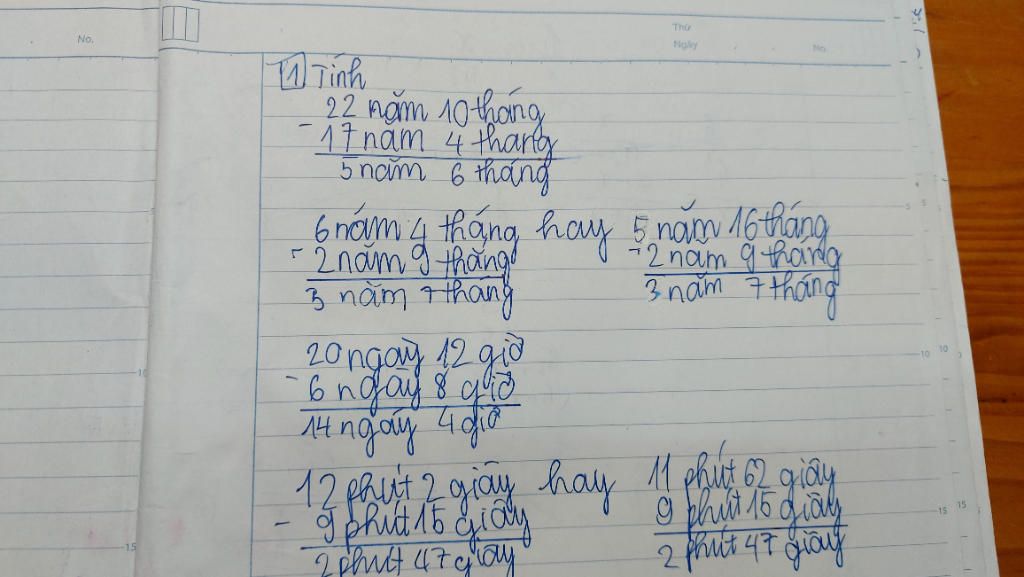 No.
Thứ
Ngày
No.
1 Tính
22 năm 10 tháng
- 17 năm 4 tháng
5 năm 6 tháng
6 năm 4 tháng hay 5 năm 16 tháng
- 2 năm 9 tháng - 2 năm 9 tháng
3 năm 7 tháng 3 năm 7 tháng
20 ngày 12 giờ
- 6 ngày 8 giờ
14 ngày 4 giờ
12 phút 2 giây hay 11 phút 62 giây
- 9 phút 15 giây 9 phút 15 giây
2 phút 47 giây 2 phút 47 giây
5
10
15